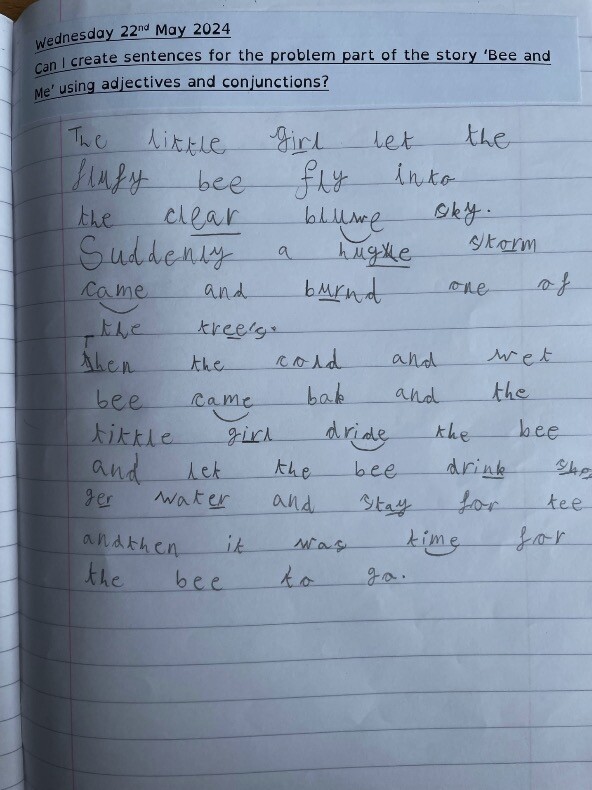 Wednesday 22nd May 2024
Can I create sentences for the problem part of the story ‘Bee and
Me’ using adjectives and conjunctions?
The little girl let the
flufy bee fly into
the clear bluwe sky.
Suddenly a hugxe storm
came and burnd one of
the tree's.
Then the cold and wet
bee came bak and the
tittle girl dride the bee
and let the bee drink sho
ger water and stay for tee
andthen it was time for
the bee to go.